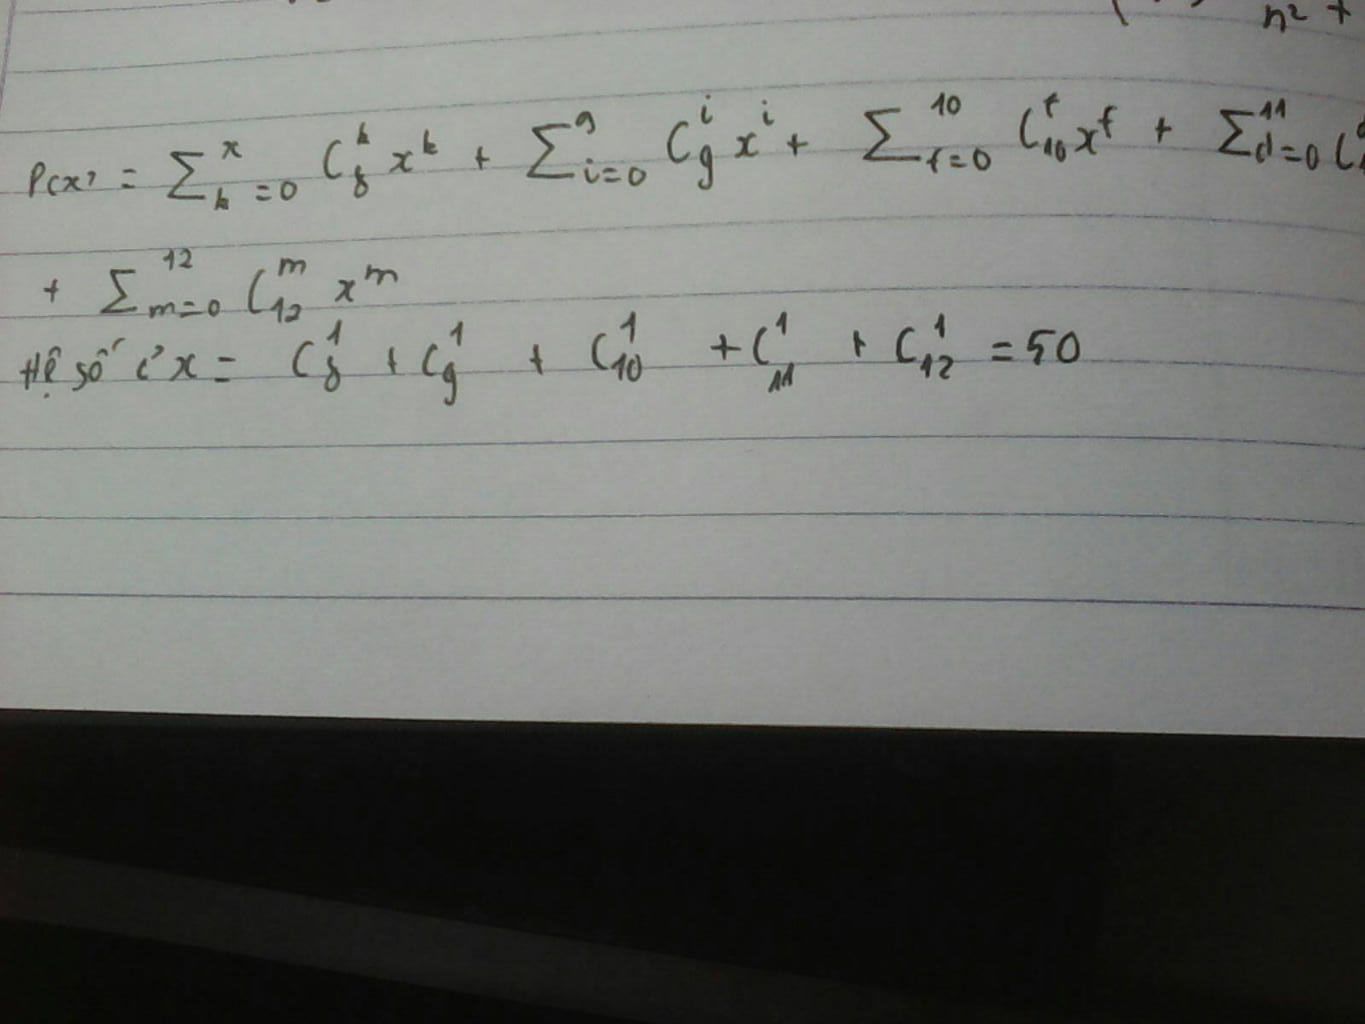 n² +
P(x) = ∑_{k=0}^{x} C_8^k x^k + ∑_{i=0}^{9} C_9^i x^i + ∑_{t=0}^{10} C_{10}^t x^t + ∑_{d=0}^{11} C
+ ∑_{m=0}^{12} C_{12}^m x^m
Hệ số c² x = C_8^1 + C_9^1 + C_{10}^1 + C_{11}^1 + C_{12}^1 = 50